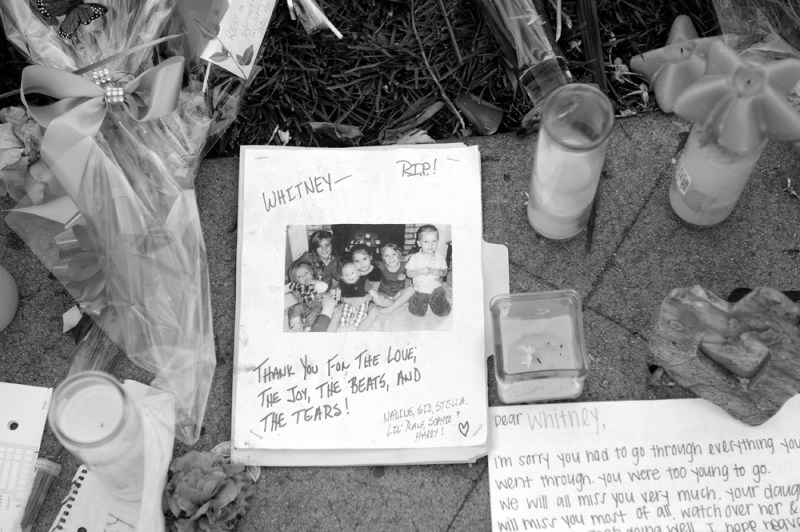 WHITNEY—
R.I.P.!
THANK YOU FOR THE LOVE,
THE JOY, THE BEATS, AND
THE TEARS!
NADINE, SID, STELLA,
LIL' RALF, SOPHIE &
HARRY!
Dear Whitney,
I'm sorry you had to go through everything you
went through. you were too young to go.
We will all miss you very much. your daug
will miss you most of all. watch over her &
doing well. hope